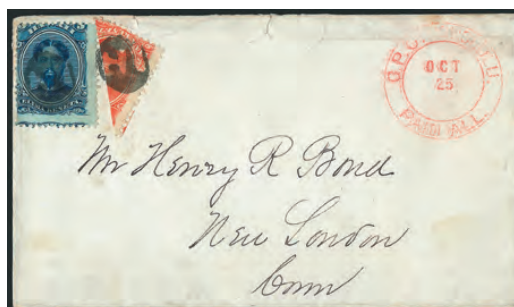 OCT
25
PAID ALL
Mr Henry R Bond
New London
Conn